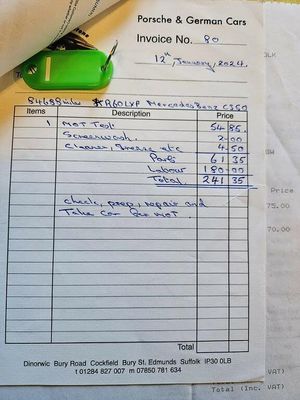 Porsche & German Cars
Invoice No. 80
12th, January, 2024.
84688 mils * AP60LXP Mercedes Benz C350
Items Description Price
1 MOT Test 54-86.
Screenwash. 2-00
Cleaner, Grease etc 4-50
Parts 61 35
Labour 180-00
Total 241 35
check, prep, repair and
Take car for MOT.
Total
Dinorwic Bury Road Cockfield Bury St. Edmunds Suffolk IP30 0LB
t 01284 827 007 m 07850 781 634
Price
75.00
70.00
VAT)
Total (Inc. VAT)